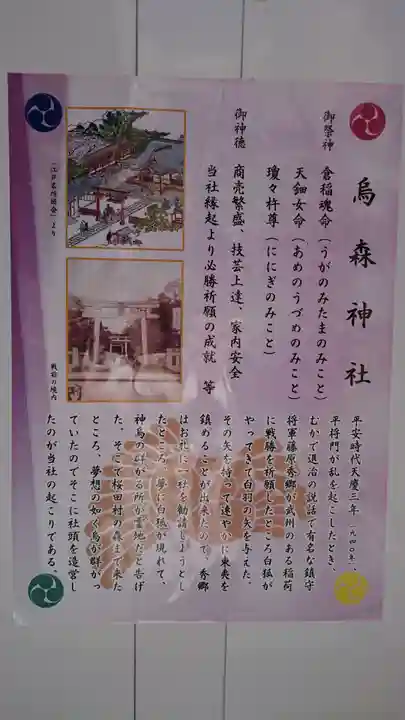 烏森神社
御祭神
倉稲魂命(うがのみたまのみこと)
天鈿女命(あめのうづめのみこと)
瓊々杵尊(ににぎのみこと)
御神徳
商売繁盛、技芸上達、家内安全
当社縁起より必勝祈願の成就 等
「江戸名所図会」より
戦前の境内
平安時代天慶三年(九四〇年)、
平将門が乱を起こしたとき、
むかで退治の説話で有名な鎮守
将軍藤原秀郷が武州のある稲荷
に戦勝を祈願したところ白狐が
やってきて白羽の矢を与えた。
その矢を持って速やかに東夷を
鎮めることが出来たので、秀郷
はお礼に一社を勧請しようとし
たところ、夢に白狐が現れて、
神鳥の群がる所が霊地だと告げ
た。そこで桜田村の森まで来た
ところ、夢想の如く烏が群がっ
ていたのでそこに社頭を造営し
たのが当社の起こりである。